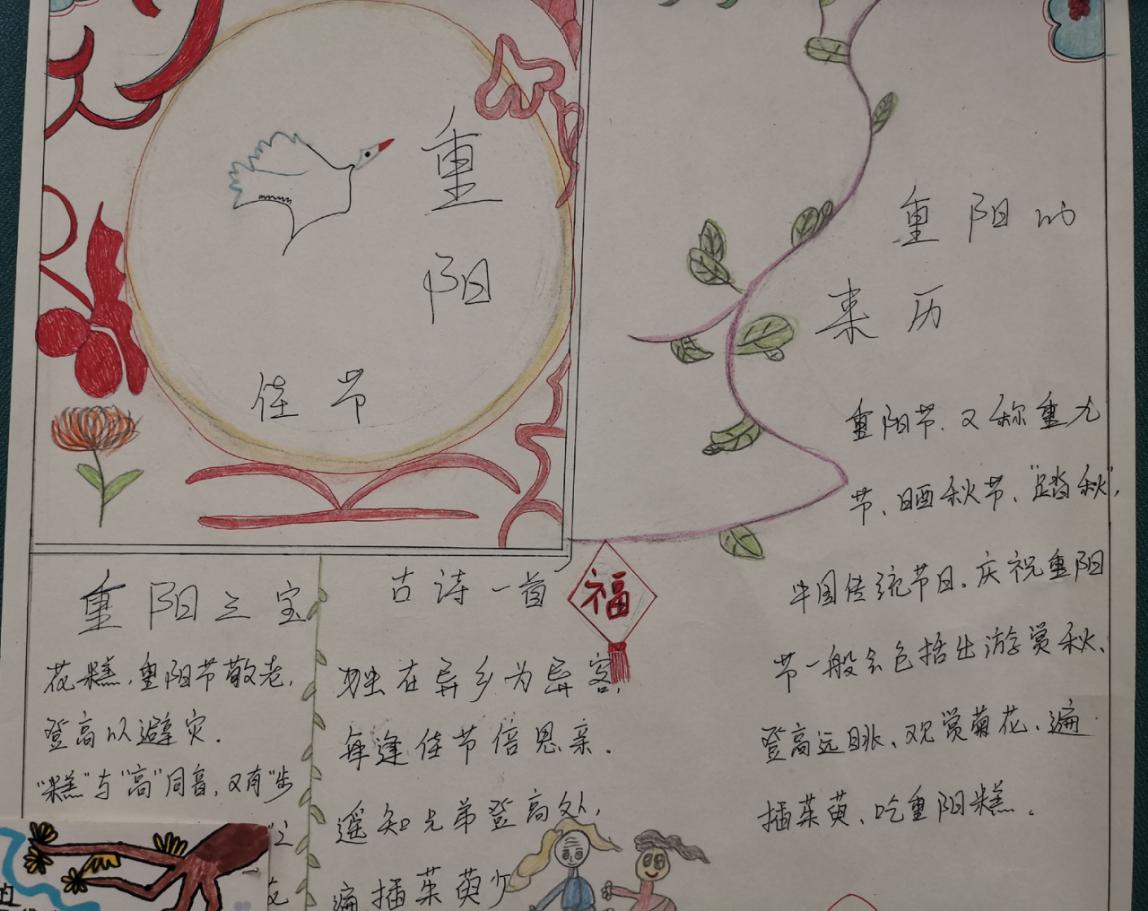 重
阳
佳节
重阳的
来历
重阳节.又称重九
节、晒秋节、"踏秋",
中国传统节日.庆祝重阳
节一般会包括出游赏秋、
登高远眺、观赏菊花、遍
插茱萸、吃重阳糕.
重阳之宝
花糕,重阳节敬老,
登高以避灾.
"糕"与"高"同音,又有"步
古诗一首
福
独在异乡为异客,
每逢佳节倍思亲.
遥知兄弟登高处,
遍插茱萸少